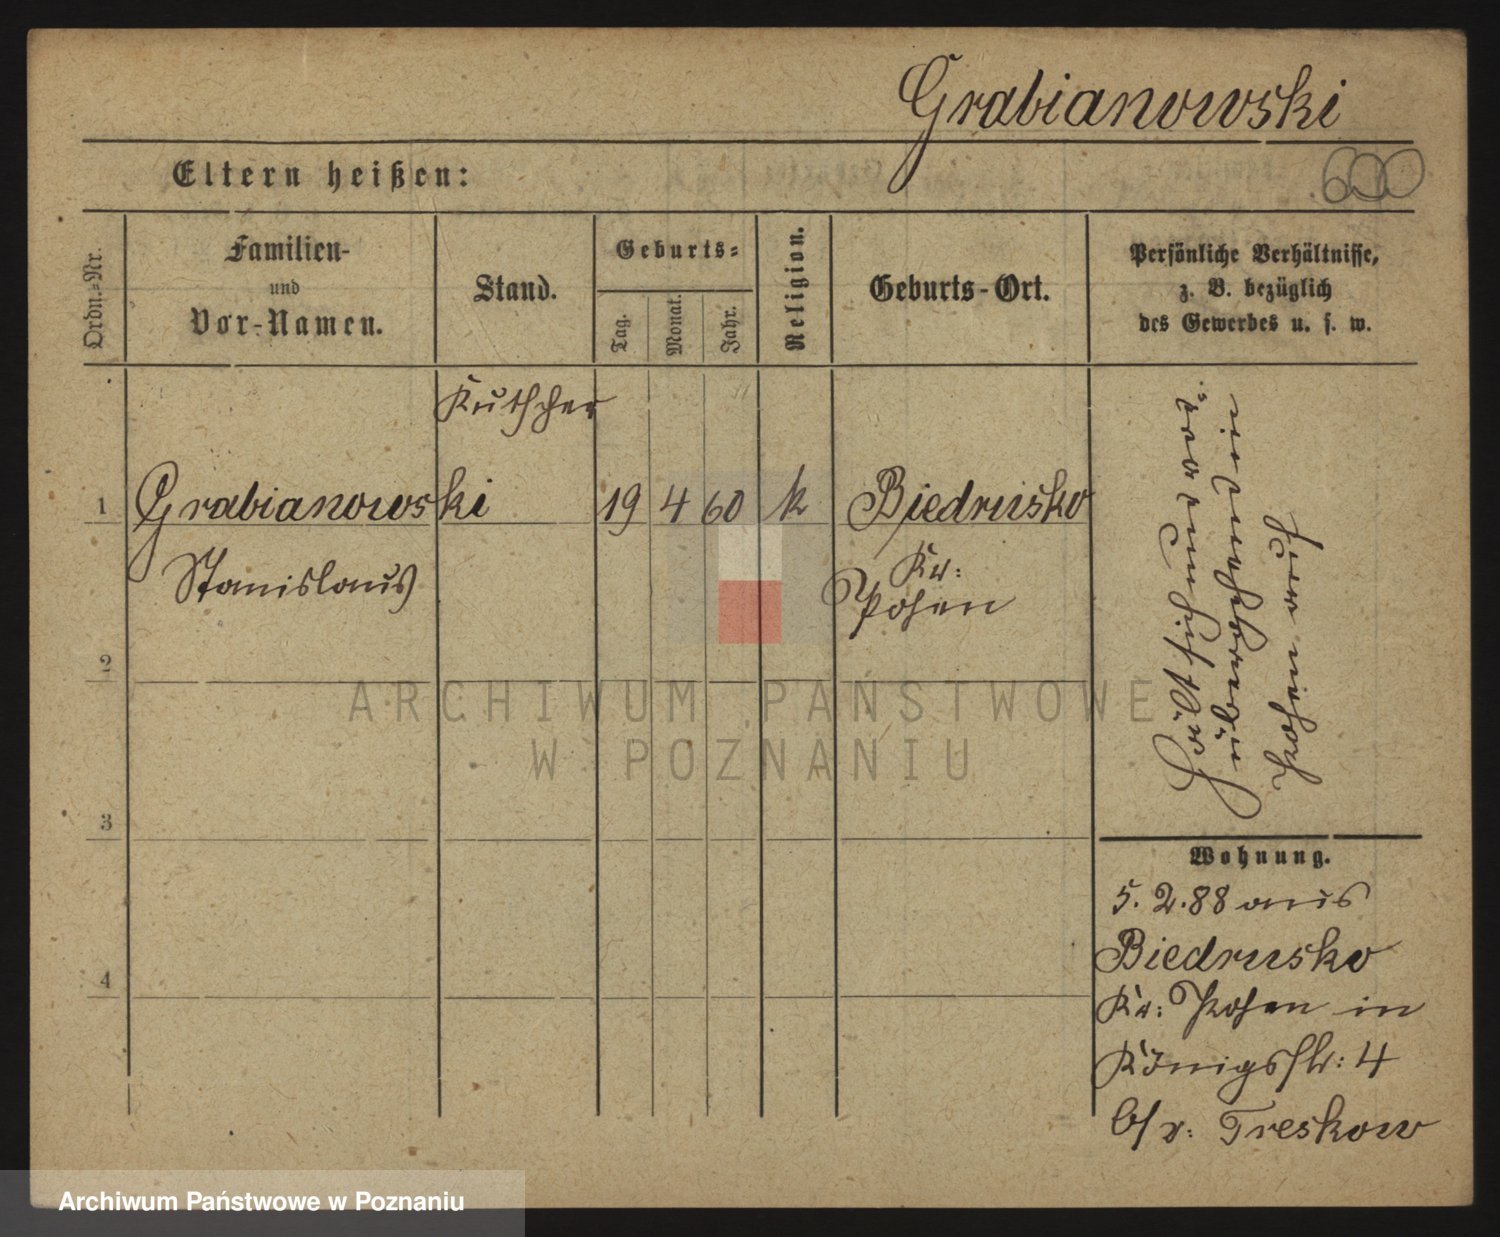 Grabianowski
600
Eltern heißen:
Ordn.-Nr.
Familien-
und
Vor-Namen.
Stand.
Geburts-
Tag.
Monat.
Jahr.
Religion.
Geburts-Ort.
Persönliche Verhältnisse,
z. B. bezüglich
des Gewerbes u. s. w.
Kutscher
1 Grabianowski 19 4 60 k Biedrusko
Stanislaus
Kr:
Posen
2
3
4
Hält sich nur
hier
Wohnung.
5. 2. 88 aus
Biedrusko
Kr: Posen in
Königsstr: 4
b/v: Treskow
ARCHIWUM PAŃSTWOWE
W POZNANIU
Archiwum Państwowe w Poznaniu